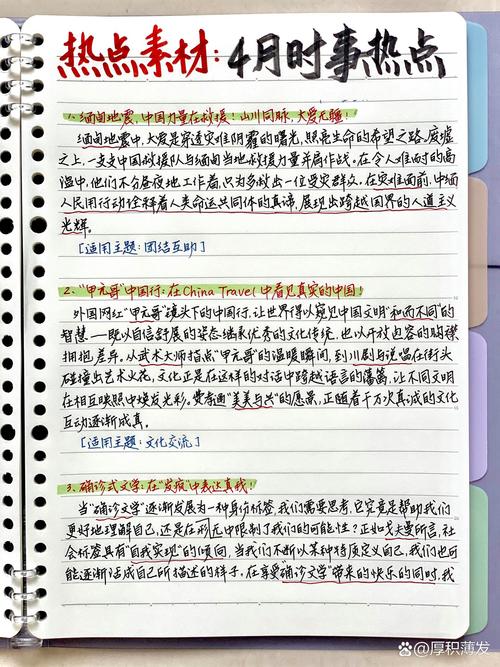 热点素材:4月时事热点
1.缅甸地震,中国力量在救援!山川同脉,大爱无疆!
缅甸地震中,大爱是穿透灾难阴霾的曙光,照亮生命的希望之路。废墟
之上,一支支中国救援队与缅甸当地救援力量并肩作战。在令人难耐的高
温中,他们不分昼夜地工作着,只为多救出一位受灾群众。在灾难面前,中缅
人民用行动诠释着人类命运共同体的真谛,展现出跨越国界的人道主义
光辉。
[适用主题:团结互助]
2.“甲亢哥”中国行:在China Travel中看见真实的中国!
外国网红“甲亢哥”镜头下的中国行,让世界得以窥见中国文明“和而不同”的
智慧——既以自信舒展的姿态继承优秀的文化传统,也以开放包容的胸襟
拥抱差异。从武术大师指点“甲亢哥”的温暖瞬间,到川剧与说唱在街头
碰撞出艺术火花,文化正是在这样的对话中跨越语言的藩篱,让不同文明
在相互映照中焕发光彩。费孝通“美美与共”的愿景,正随着千万次真诚的文化
互动逐渐成真。
[适用主题:文化交流]
3.确诊式文学:在“发疯”中表达真我!
当“确诊文学”逐渐发展为一种身份标签,我们需要思考,它究竟是帮助我们
更好地理解自己,还是在形无中限制了我们的可能性?正如戈夫曼所言,社
会标签具有“自我实现”的倾向,当我们不断以某种特质定义自己,我们也可
能逐渐活成自己所描述的样子。在享受“确诊文学”带来的快乐的同时,我
@厚积薄发